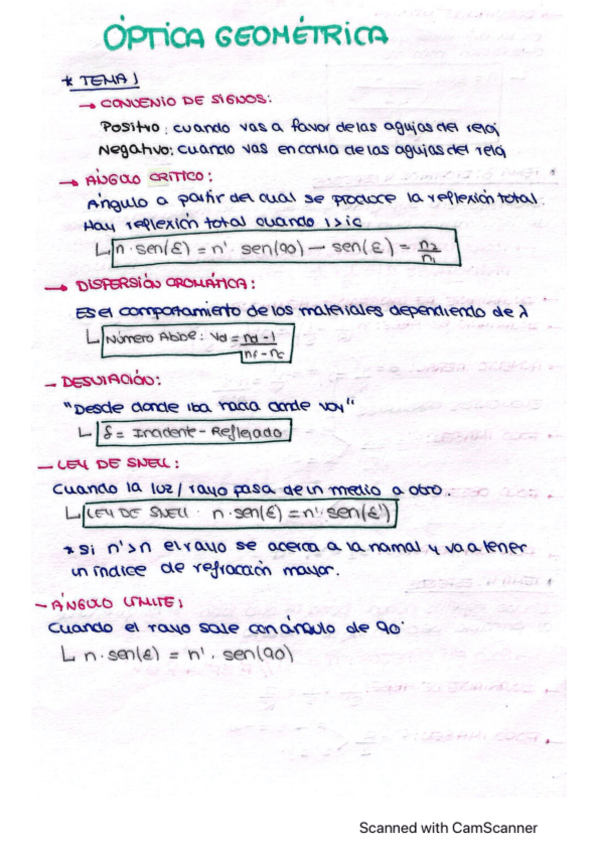 ÓPTICA GEOMÉTRICA
* TEMA 1
→ CONVENIO DE SIGNOS:
Positivo: cuando vas a favor de las agujas del reloj
Negativo: cuando vas en contra de las agujas del reloj
→ ÁNGULO CRÍTICO:
Ángulo a partir del cual se produce la reflexión total.
Hay reflexión total cuando i > ic
n · sen(ε) = n' · sen(90) — sen(ε) = n2/n1
→ DISPERSIÓN CROMÁTICA:
Es el comportamiento de los materiales dependiendo de λ
Número Abbe: Vd = nd - 1 / nf - nc
→ DESVIACIÓN:
"Desde donde iba hacia donde voy"
δ = Incidente - Reflejado
— LEY DE SNELL:
Cuando la luz / rayo pasa de un medio a otro.
LEY DE SNELL: n · sen(ε) = n' · sen(ε')
* Si n' > n el rayo se acerca a la normal y va a tener
un índice de refracción mayor.
— ÁNGULO LÍMITE:
Cuando el rayo sale con ángulo de 90°
n · sen(ε) = n' · sen(90)
Scanned with CamScanner